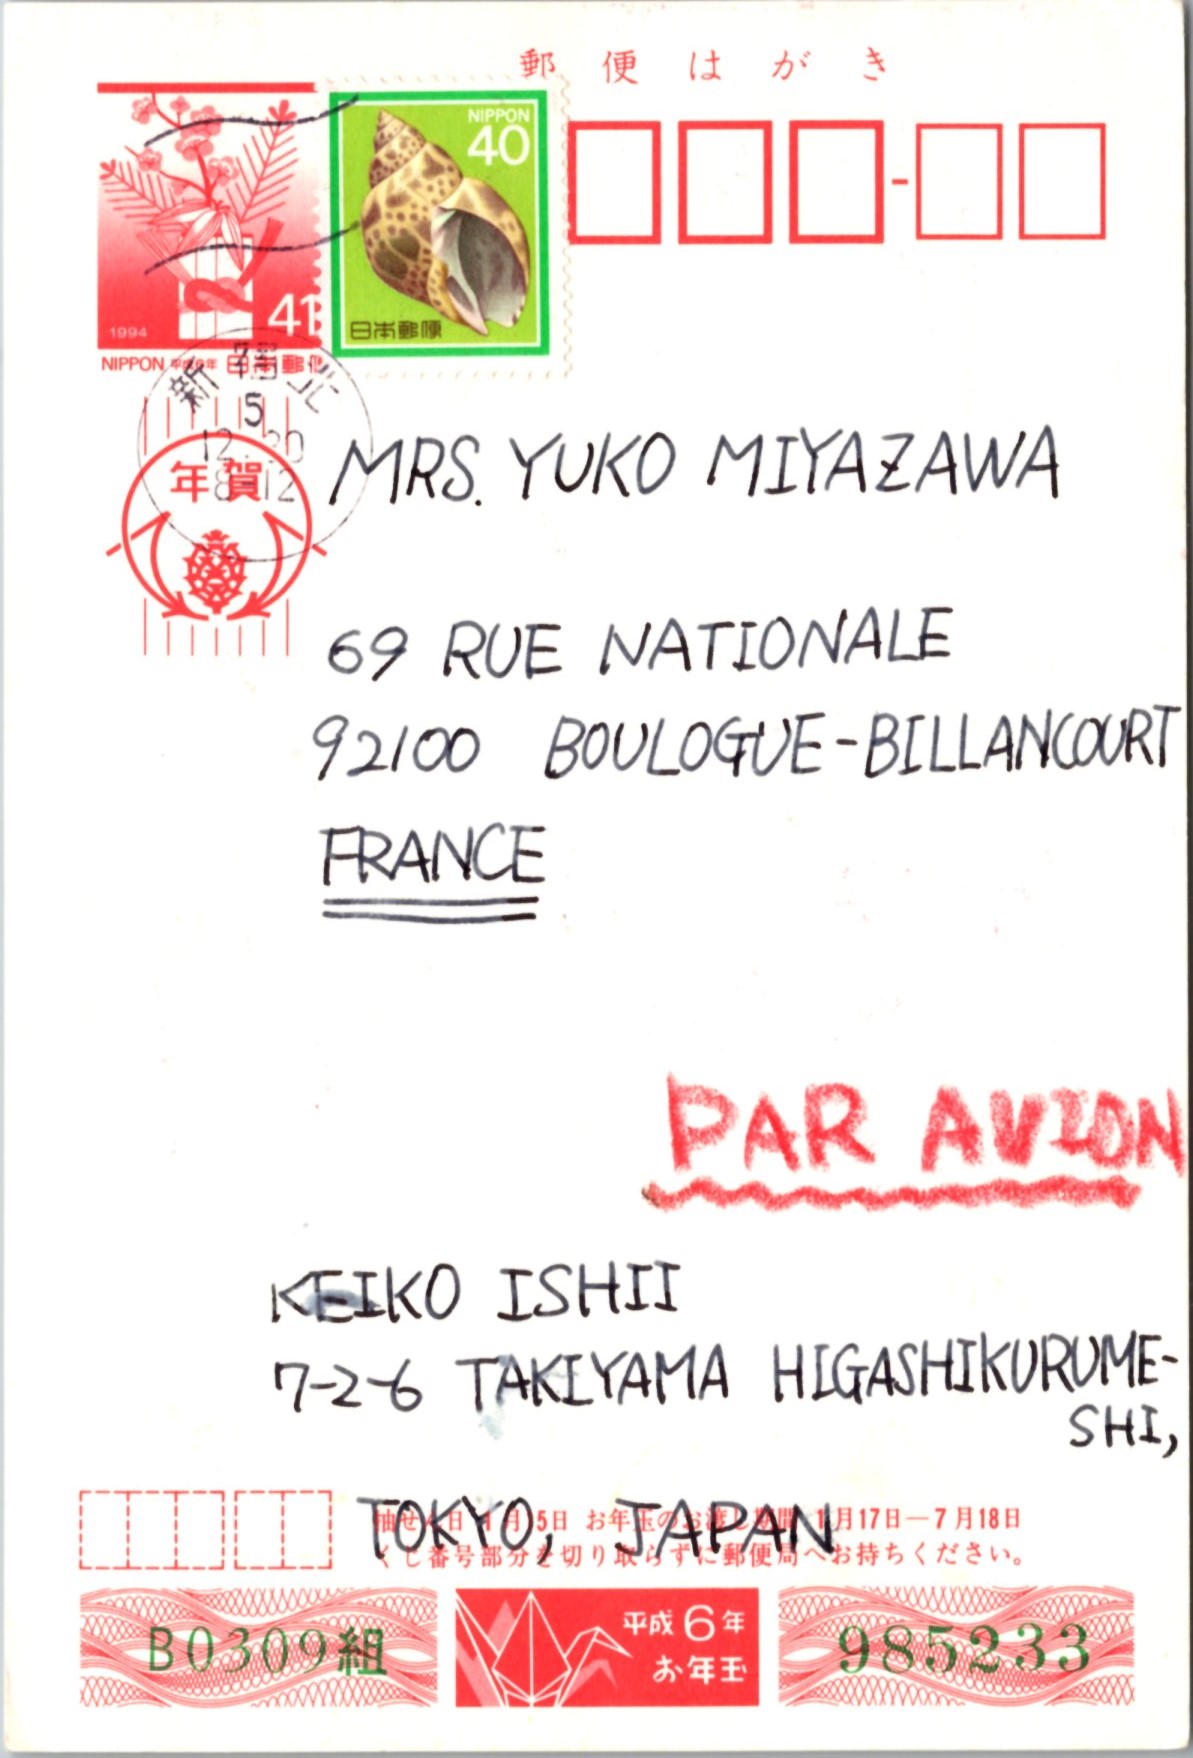 郵便はがき
NIPPON
40
日本郵便
1994
41
NIPPON 平成6年 日本郵便
5
12.20
8-12
年賀
MRS. YUKO MIYAZAWA
69 RUE NATIONALE
92100 BOULOGUE-BILLANCOURT
FRANCE
PAR AVION
KEIKO ISHII
7-2-6 TAKIYAMA HIGASHIKURUME-
SHI,
TOKYO, JAPAN
月15日 お年玉のお渡し期間 1月17日—7月18日
くじ番号部分を切り取らずに郵便局へお持ちください。
B0309組
平成6年
お年玉
985233